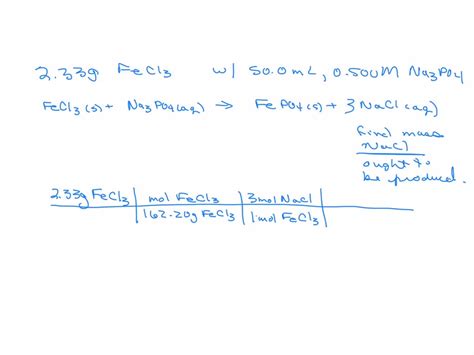 2.33g FeCl3 w/ 50.0mL, 0.500M Na3PO4
FeCl3(s) + Na3PO4(aq) → FePO4(s) + 3NaCl(aq)
find mass
NaCl
ought to
be produced.
2.33g FeCl3 | mol FeCl3 | 3mol NaCl |
162.20g FeCl3 | 1mol FeCl3 |